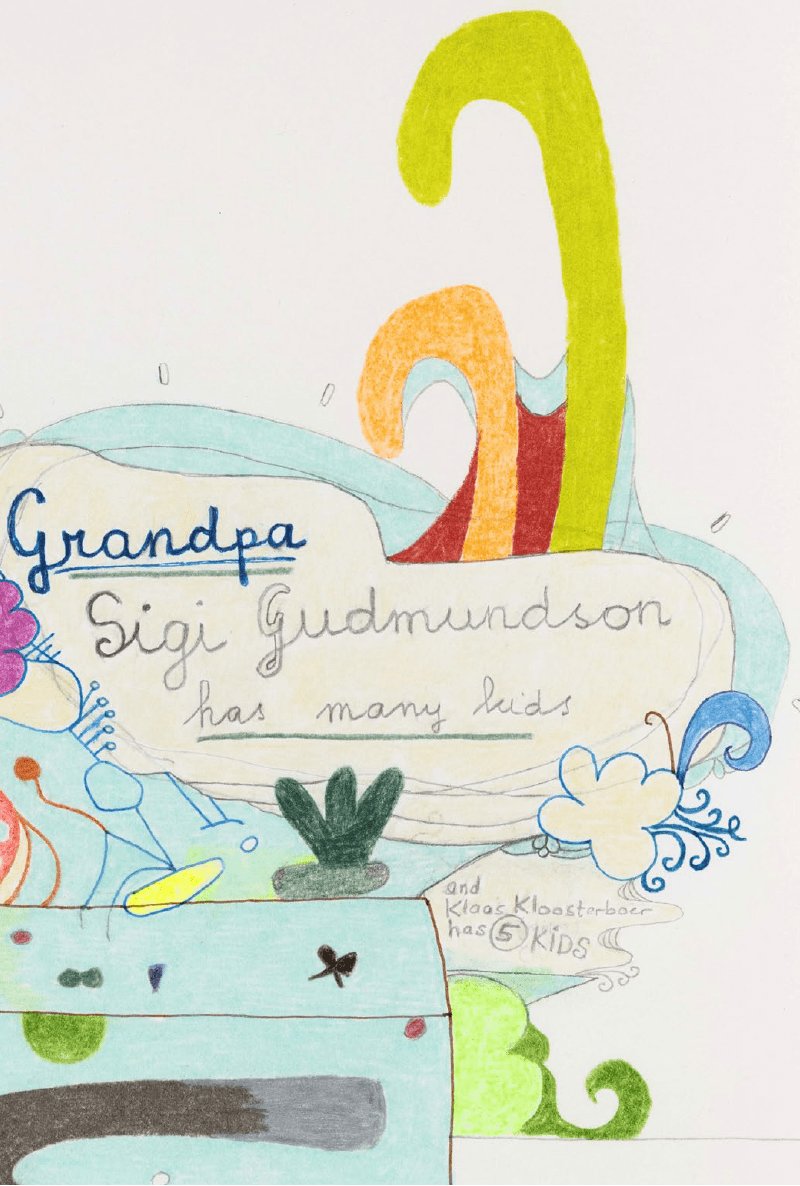 Grandpa
Sigi Gudmundson
has many kids
and
Klaas Kloosterboer
has 5 KiDS